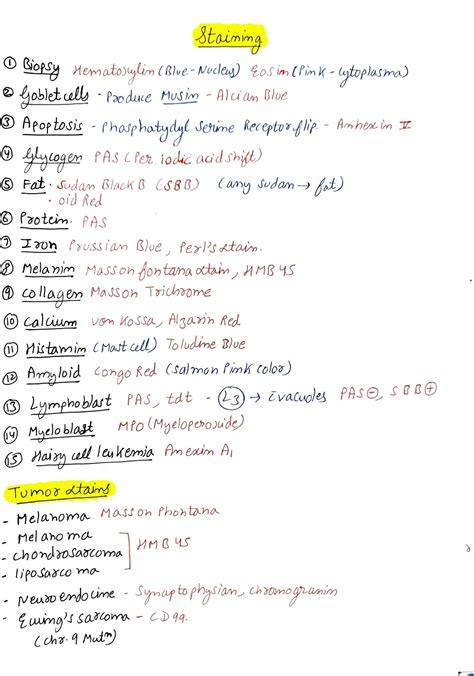 Staining
① Biopsy Hematoxylim (Blue-Nucleus) Eosim (Pink - cytoplasma)
② Goblet cells - Produce Musim - Alcian Blue
③ Apoptosis - Phosphatydyl Serime Receptor flip - Anhexin V
④ Glycogen PAS (Per. iodic acid shift)
⑤ Fat · Sudan Black B (SBB) (any sudan → fat)
· oid Red
⑥ Protein. PAS
⑦ Iron Prussian Blue, Perl's stain.
⑧ Melanim Masson fontana stain, HMB 45
⑨ Collagen Masson Trichrome
⑩ Calcium von Kossa, Alzarin Red
⑪ Histamim (Mast cell) Toludine Blue
⑫ Amyloid Congo Red (Salmon Pink color)
⑬ Lymphoblast PAS, tdt - L3 → Evacuoles PAS ⊖, SBB ⊕
⑭ Myeloblast MPO (Myeloperoxide)
⑮ Hairy cell leukemia Anexim A1
Tumor stains
- Melanoma Masson Phontana
- Melanoma
- Chondrosarcoma ] HMB 45
- liposarcoma
- Neuroendocine - Synaptophysian, chromogranim
- Ewing's sarcoma - CD99.
(chr. 9 Mutⁿ)